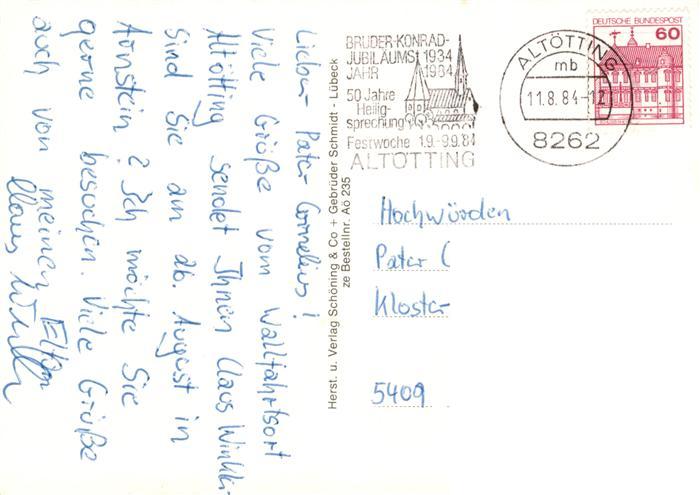 Lieber Pater Cornelius!
Viele Grüße vom Wallfahrtsort
Altötting sendet Ihnen Claus Winkl-
Sind Sie am ab. August in
Arnstein? Ich möchte Sie
gerne besuchen. Viele Grüße
auch von meinen Eltern
Claus
Herst. u. Verlag Schöning & Co + Gebrüder Schmidt - Lübeck
ze Bestellnr. Aö 235
BRUDER-KONRAD-
JUBILÄUMS 1934
JAHR 1984
50 Jahre
Heilig-
sprechung
Festwoche 1.9.-9.9.84
ALTÖTTING
ALTÖTTING
mb
11.8.84-12
8262
DEUTSCHE BUNDESPOST
60
Hochwürden
Pater C
Kloster
5409